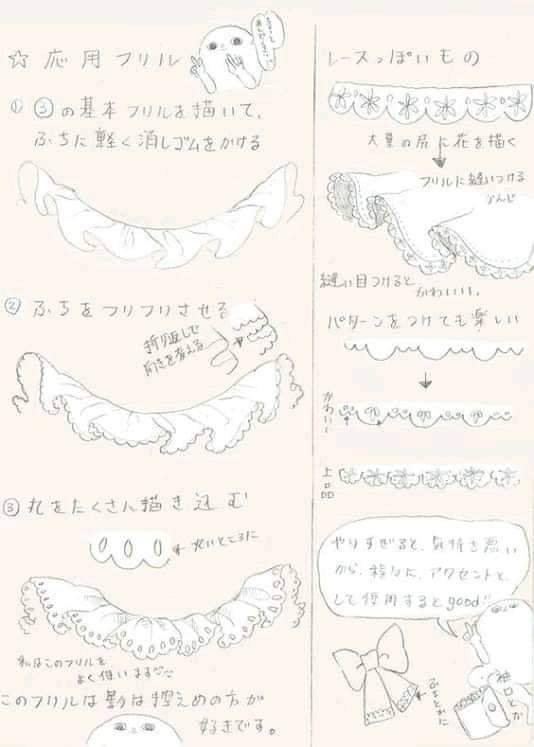 ☆応用フリル
① ③の基本フリルを描いて、
ふちに軽く消しゴムをかける
② ふちをフリフリさせる
折り返しで
向きを変える
③ 丸をたくさん描き込む
丸いところに
私はこのフリルを
よく使います
このフリルは影は控えめの方が
好きです。
レースっぽいもの
大量の尻に花を描く
フリルに縫いつける
かんじ
縫い目つけると
かわいい。
パターンをつけても楽しい
かわいー
上品
やりすぎると、気持ち悪い
が、裾などに、アクセントと
して使用するとgood!!
袖口とか